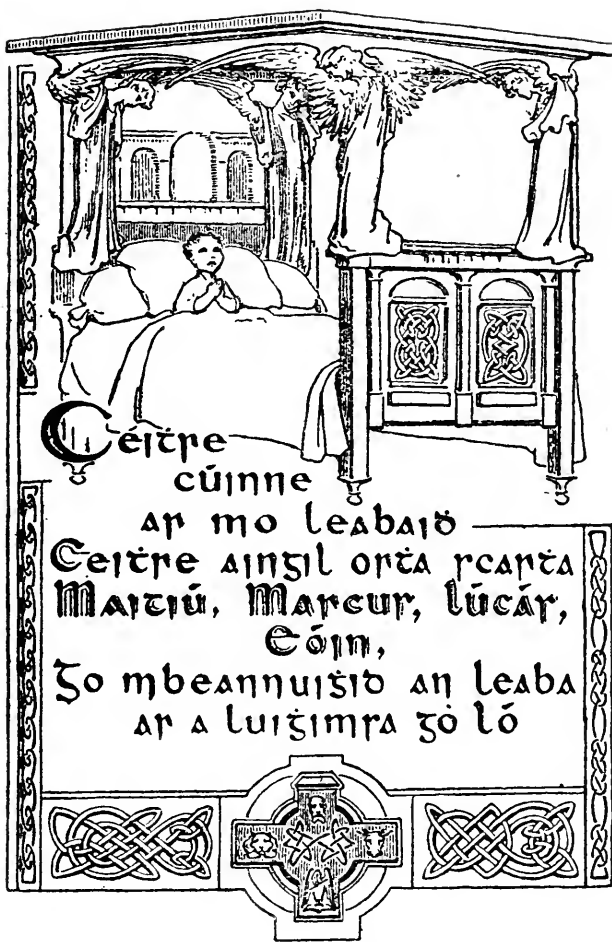 Céiṫre
cúinne
ar mo leabaiḋ
Ceiṫre aingil orṫa scarṫa
Maitiú, Marcus, Lúcás,
Eóin,
Go mbeannuiġid an leaba
ar a luiġimsa go ló